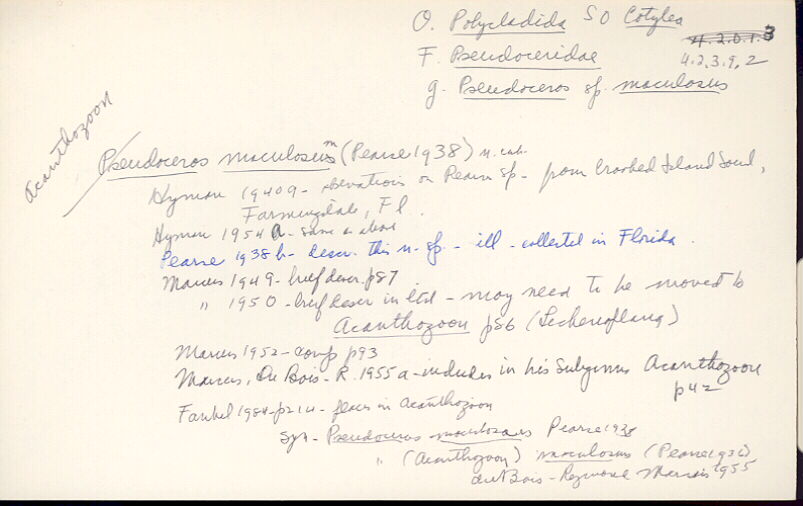 O. Polycladida SO Cotylea
4.2.0.1.3
F. Pseudoceridae
4.2.3.9.2
g. Pseudoceros sp. maculosus
Acanthozoon
Pseudoceros maculosus m (Pearse 1938) n. cub.
Hyman 1940a - observations on Pearse sp - from Crooked Island Sound,
Farmingdale, Fl.
Hyman 1954a - same as above
Pearse 1938b - descr. this n. sp. - ill - collected in Florida.
Marcus 1949 - brief descr. p87
" 1950 - brief descr in ltd - may need to be moved to
Acanthozoon p86
Marcus 1952 - comp p93
Marcus, Du Bois - R. 1955a - includes in his Subgenus Acanthozoon
p42
Faubel 1984 - p214 - places in Acanthozoon
Syn - Pseudoceros maculosus Pearse 1938
" (Acanthozoon) maculosus (Pearse 1938)
du Bois - Reymond Marcus 1955